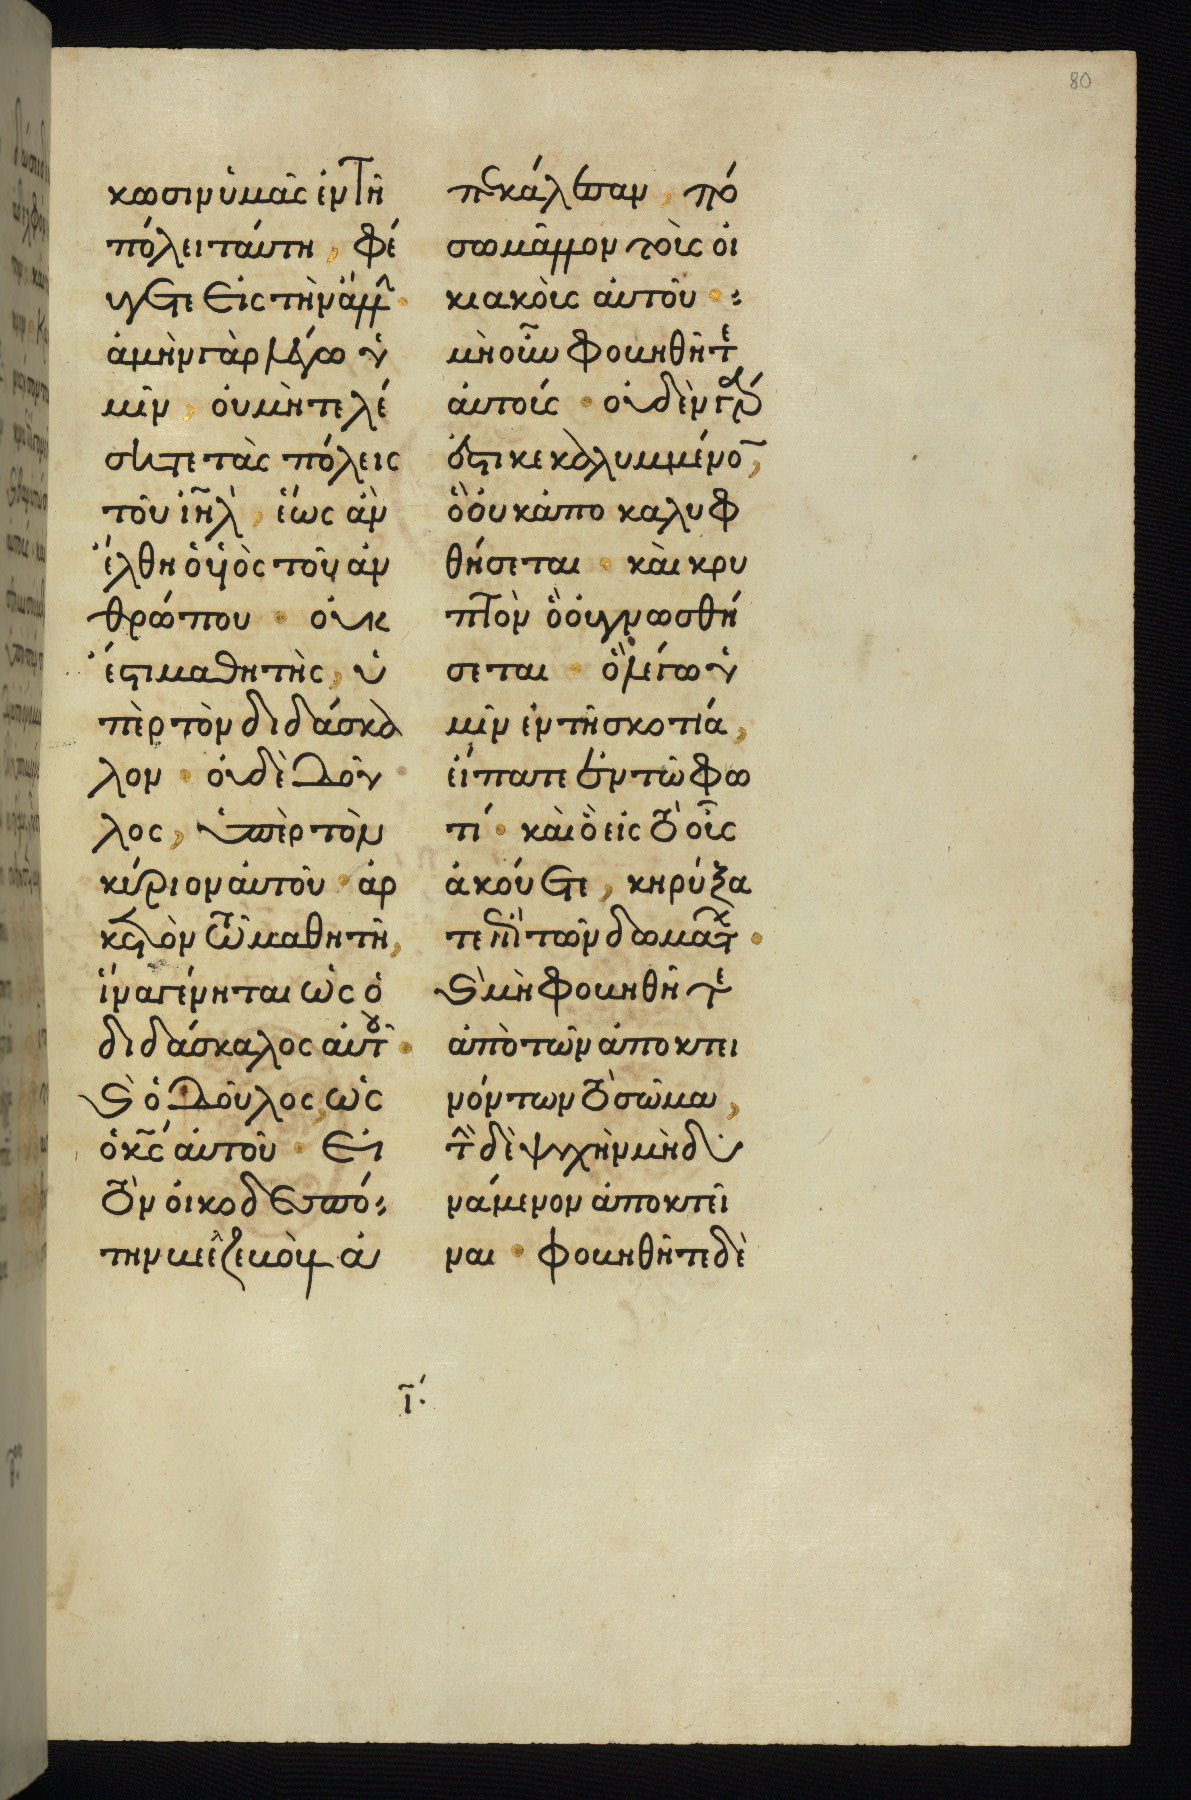 80
κωσιν ὑμᾶς ἐν τῆ
πόλει ταύτη, φέ
υγετε εἰς τὴν ἄλλ·
ἀμὴν γὰρ λέγω ὑ
μῖν, οὐ μὴ τελέ
σητε τὰς πόλεις
τοῦ ἰῆλ̀, ἕως ἀν
ἔλθη ὁ υἱὸς τοῦ ἀν
θρώπου · οὐκ
ἔστι μαθητὴς, ὑ
πὲρ τὸν διδάσκα
λον · οὐδὲ δοῦ
λος, ὑπὲρ τὸν
κύριον αὐτοῦ · ἀρ
κετὸν τῶ μαθητῆ,
ἵνα γένηται ὡς ὁ
διδάσκαλος αὐτοῦ ·
καὶ ὁ δοῦλος, ὡς
ὁ κς̃ αὐτοῦ · Εἰ
τὸν οἰκοδεσπό
την βεελζεβοὺλ ἐ
πεκάλεσαν, πό
σω μᾶλλον τοὶς οἰ
κιακοὶς αὐτοῦ ·
μὴ οὖν φοβηθῆτε
αὐτούς · οὐδὲν γάρ
ἐστι κεκαλυμμένον,
ὃ οὐκ ἀποκαλυφ
θήσεται · καὶ κρυ
πτὸν ὃ οὐ γνωσθή
σεται · ὃ λέγω ὑ
μῖν ἐν τῆ σκοτία,
εἴπατε ἐν τῶ φω
τί · καὶ ὃ εἰς τὸ οὖς
ἀκούετε, κηρύξα
τε ἐπὶ τῶν δωμάτων ·
καὶ μὴ φοβηθῆτε
ἀπὸ τῶν ἀποκτει
νόντων τὸ σῶμα,
τὴν δὲ ψυχὴν μὴ δυ
νάμενον ἀποκτεῖ
ναι · φοβηθῆτε δὲ
ῑ·